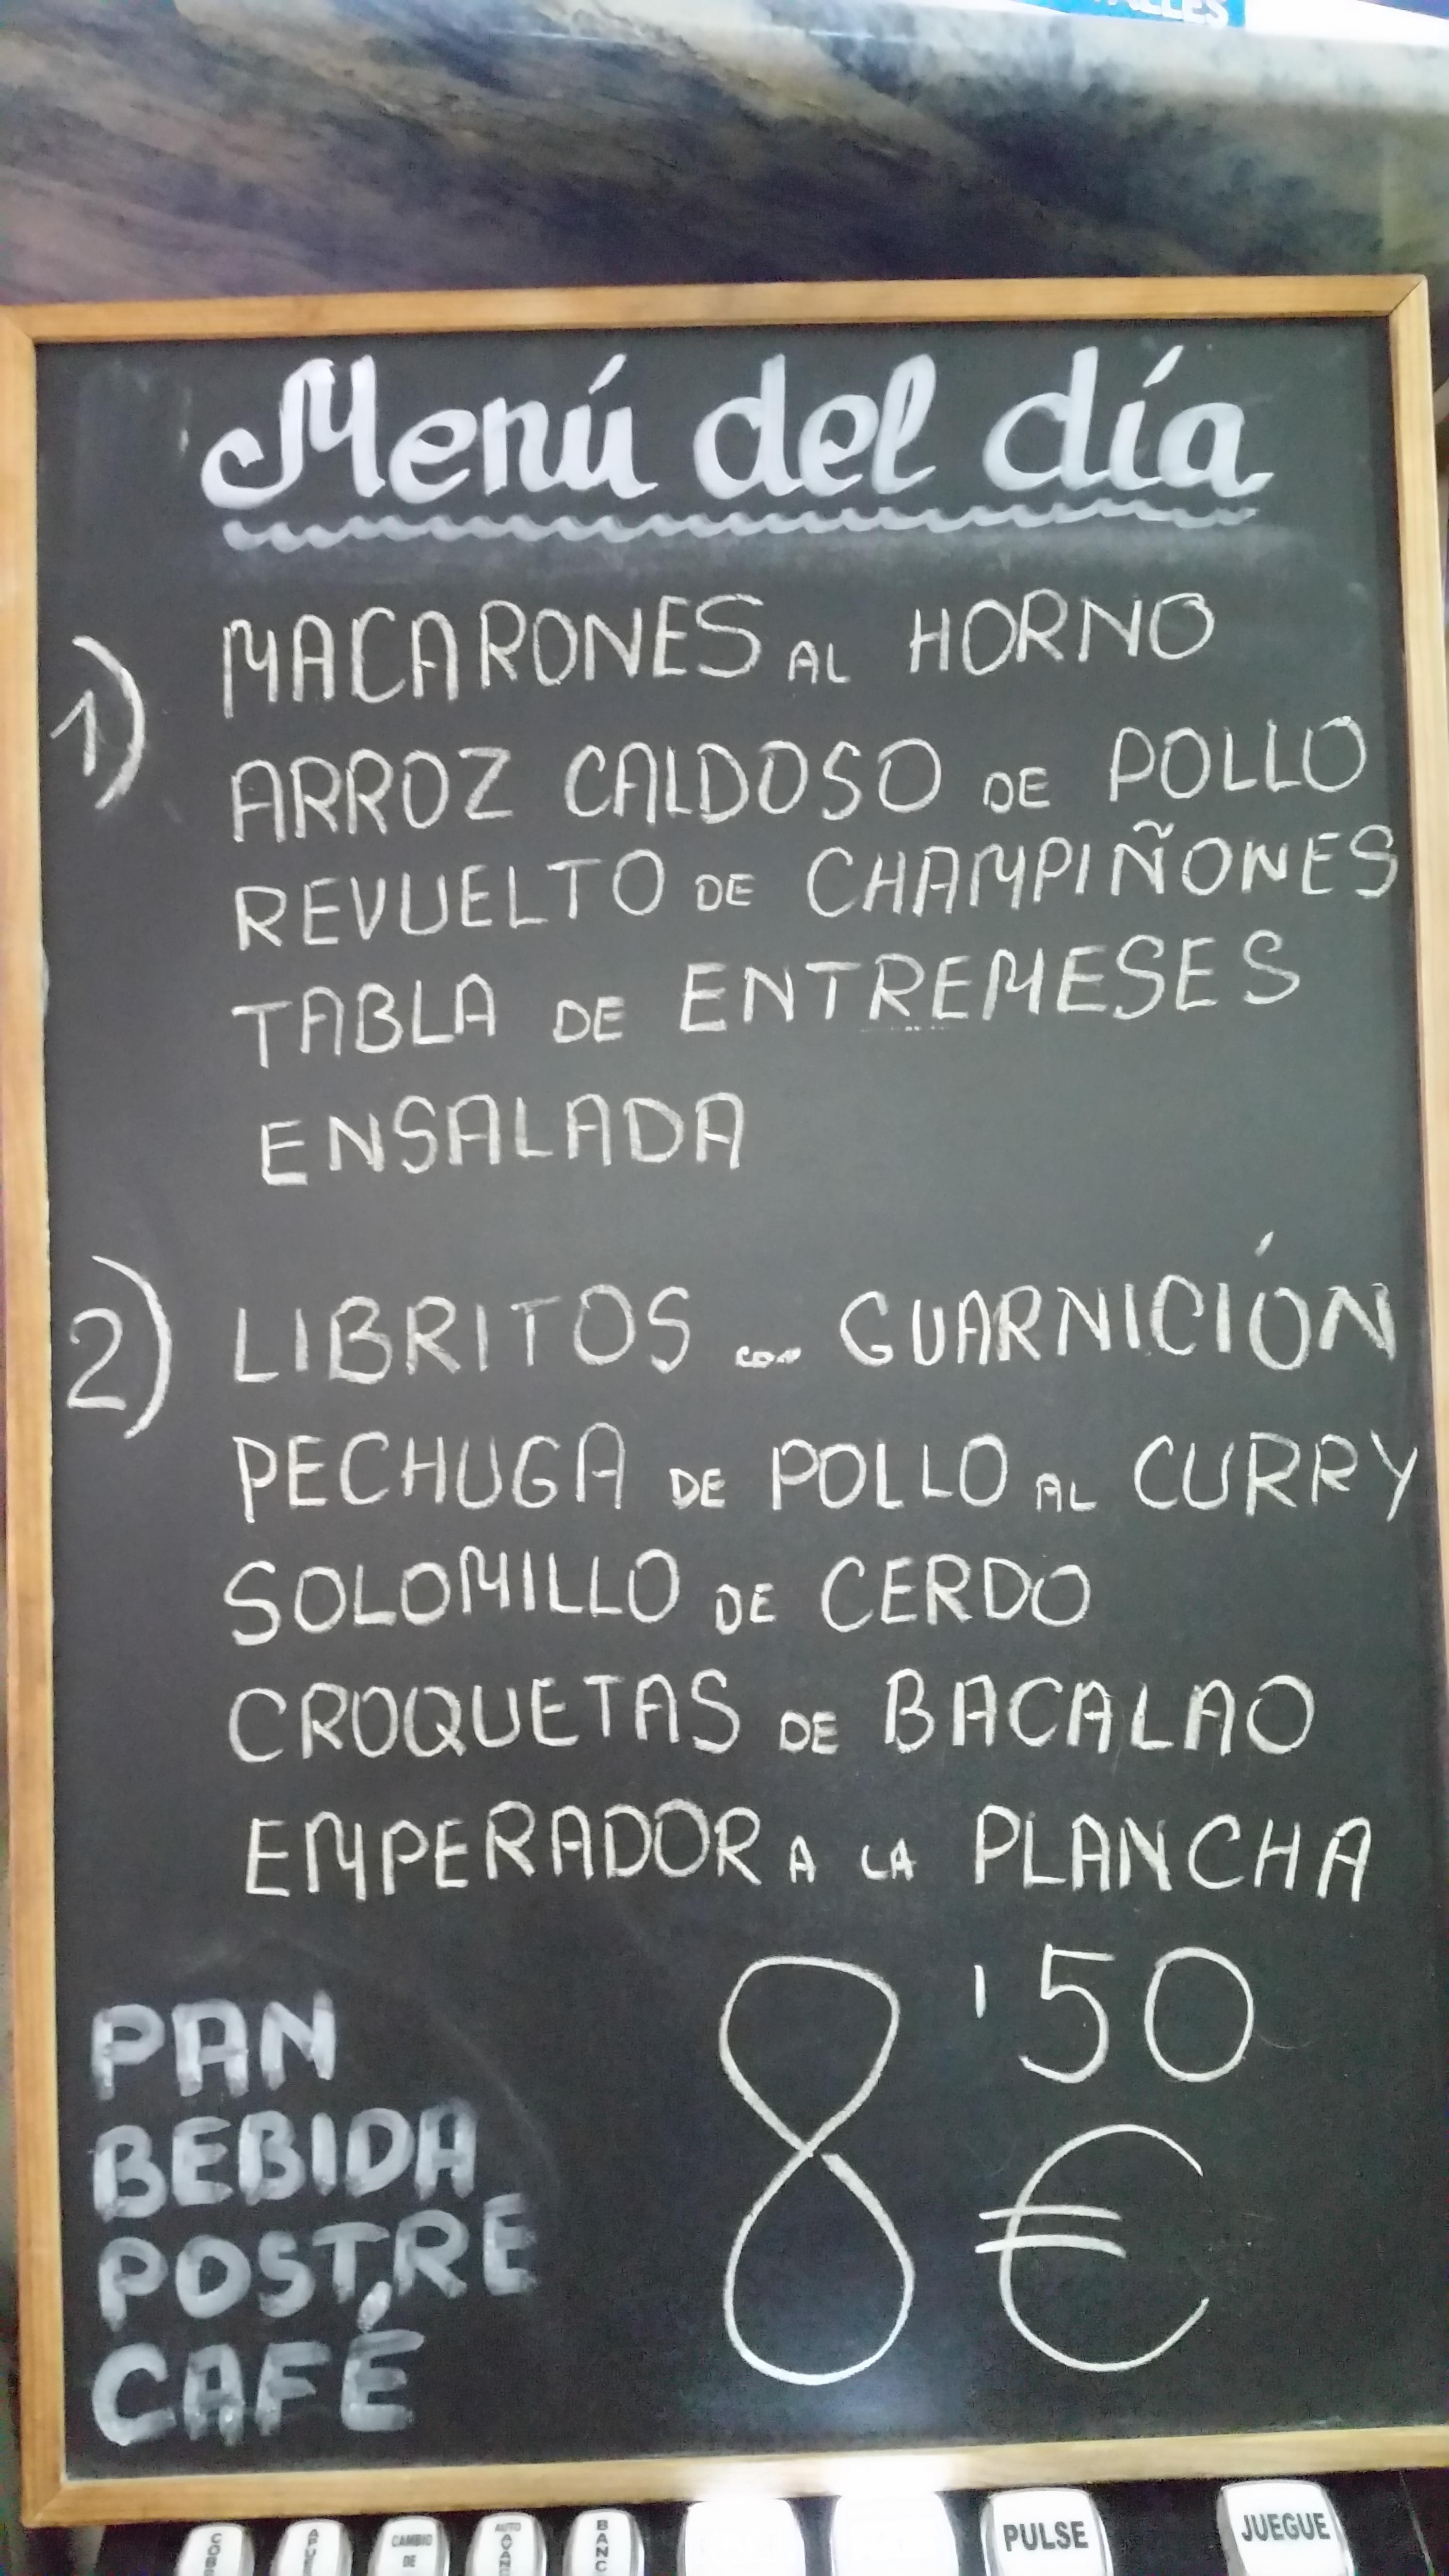 Menú del día
1) MACARONES AL HORNO
ARROZ CALDOSO DE POLLO
REVUELTO DE CHAMPIÑONES
TABLA DE ENTREMESES
ENSALADA
2) LIBRITOS con GUARNICIÓN
PECHUGA DE POLLO AL CURRY
SOLOMILLO DE CERDO
CROQUETAS DE BACALAO
EMPERADOR A LA PLANCHA
PAN
BEBIDA
POSTRE
CAFÉ
8'50
€
CAMBIO
DE
AUTO
PULSE
JUEGUE